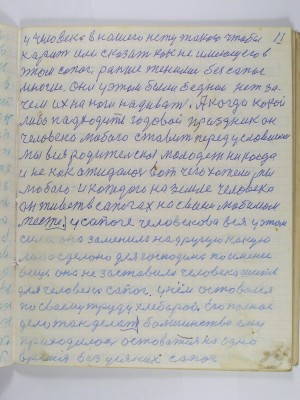 11
у человека в нашего нету такого чтобы
карит или сказат как не имеющего в
этом сапог, ранше
многие. они у этом были бедное нет за-
чем их на ноги надиват. А когда какой
либо подходит годовой праздник он
человека любого ставит перед условием
мы вся родителской молодеж никогда
и не как ожидают вот чево хотели мы
любого и каждого на земле человека
он живёт в сапогах на своим любимом
месте. у сапоге человекова вся у этом
сила она заменила на другую какую
либо сделано для господина по имени
вещь она не заставила человека
для человека сапог. у нём оставался
по своему труду хлебаров. его полное
дело так делат болшинство ему
приходилос оставатся на одно
время без всяких сапог